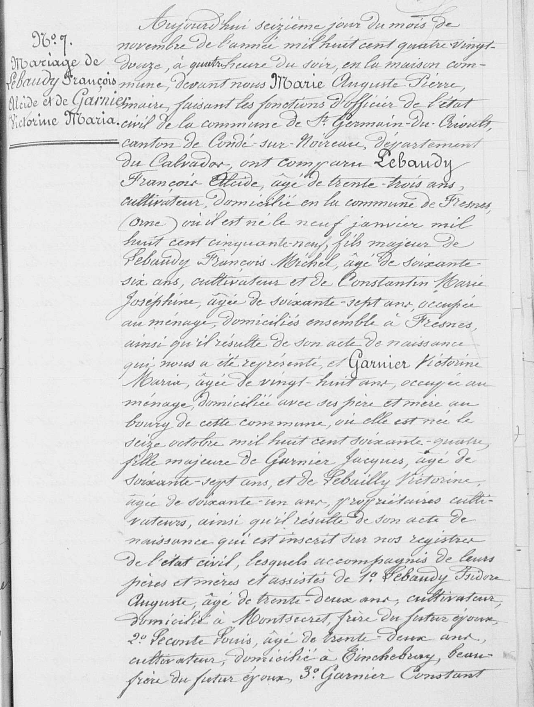 N.º 7.
Mariage de
Lebaudy François
Alcide et de Garnier
Victorine Maria.
Aujourd'hui seizième jour du mois de
novembre de l'année mil huit cent quatre vingt-
douze, à quatre heure du soir, en la maison com-
mune, devant nous Marie Auguste Pierre,
maire, faisant les fonctions d'officier de l'état
civil de la commune de St Germain-Du-Crioult,
canton de Condé-sur-Noireau, département
du Calvados, ont comparu Lebaudy
François Alcide, âgé de trente-trois ans,
cultivateur, domicilié en la commune de Fresnes,
(Orne) où il est né le neuf janvier mil
huit cent cinquante-neuf, fils majeur de
Lebaudy François Michel, âgé de soixante-
six ans, cultivateur et de Constantin Marie
Joséphine, âgée de soixante-sept ans, occupée
au ménage, domiciliés ensemble à Fresnes,
ainsi qu'il résulte de son acte de naissance
qui nous a été représenté, et Garnier Victorine
Maria, âgée de vingt-huit ans, occupée au
ménage, domiciliée avec ses père et mère au
bourg de cette commune, où elle est née le
seize octobre mil huit cent soixante-quatre,
fille majeure de Garnier Jacques, âgé de
soixante-sept ans, et de Lebailly Victorine,
âgée de soixante-un ans, propriétaires culti-
vateurs, ainsi qu'il résulte de son acte de
naissance qui est inscrit sur nos registres
de l'état civil, lesquels accompagnés de leurs
pères et mères et assistés de 1º Lebaudy Isidore
Auguste, âgé de trente-deux ans, cultivateur,
domicilié à Montsecret, frère du futur époux,
2º Leconte Louis, âgé de trente-deux ans,
cultivateur, domicilié à Tinchebray, beau-
frère du futur époux, 3º Garnier Constant